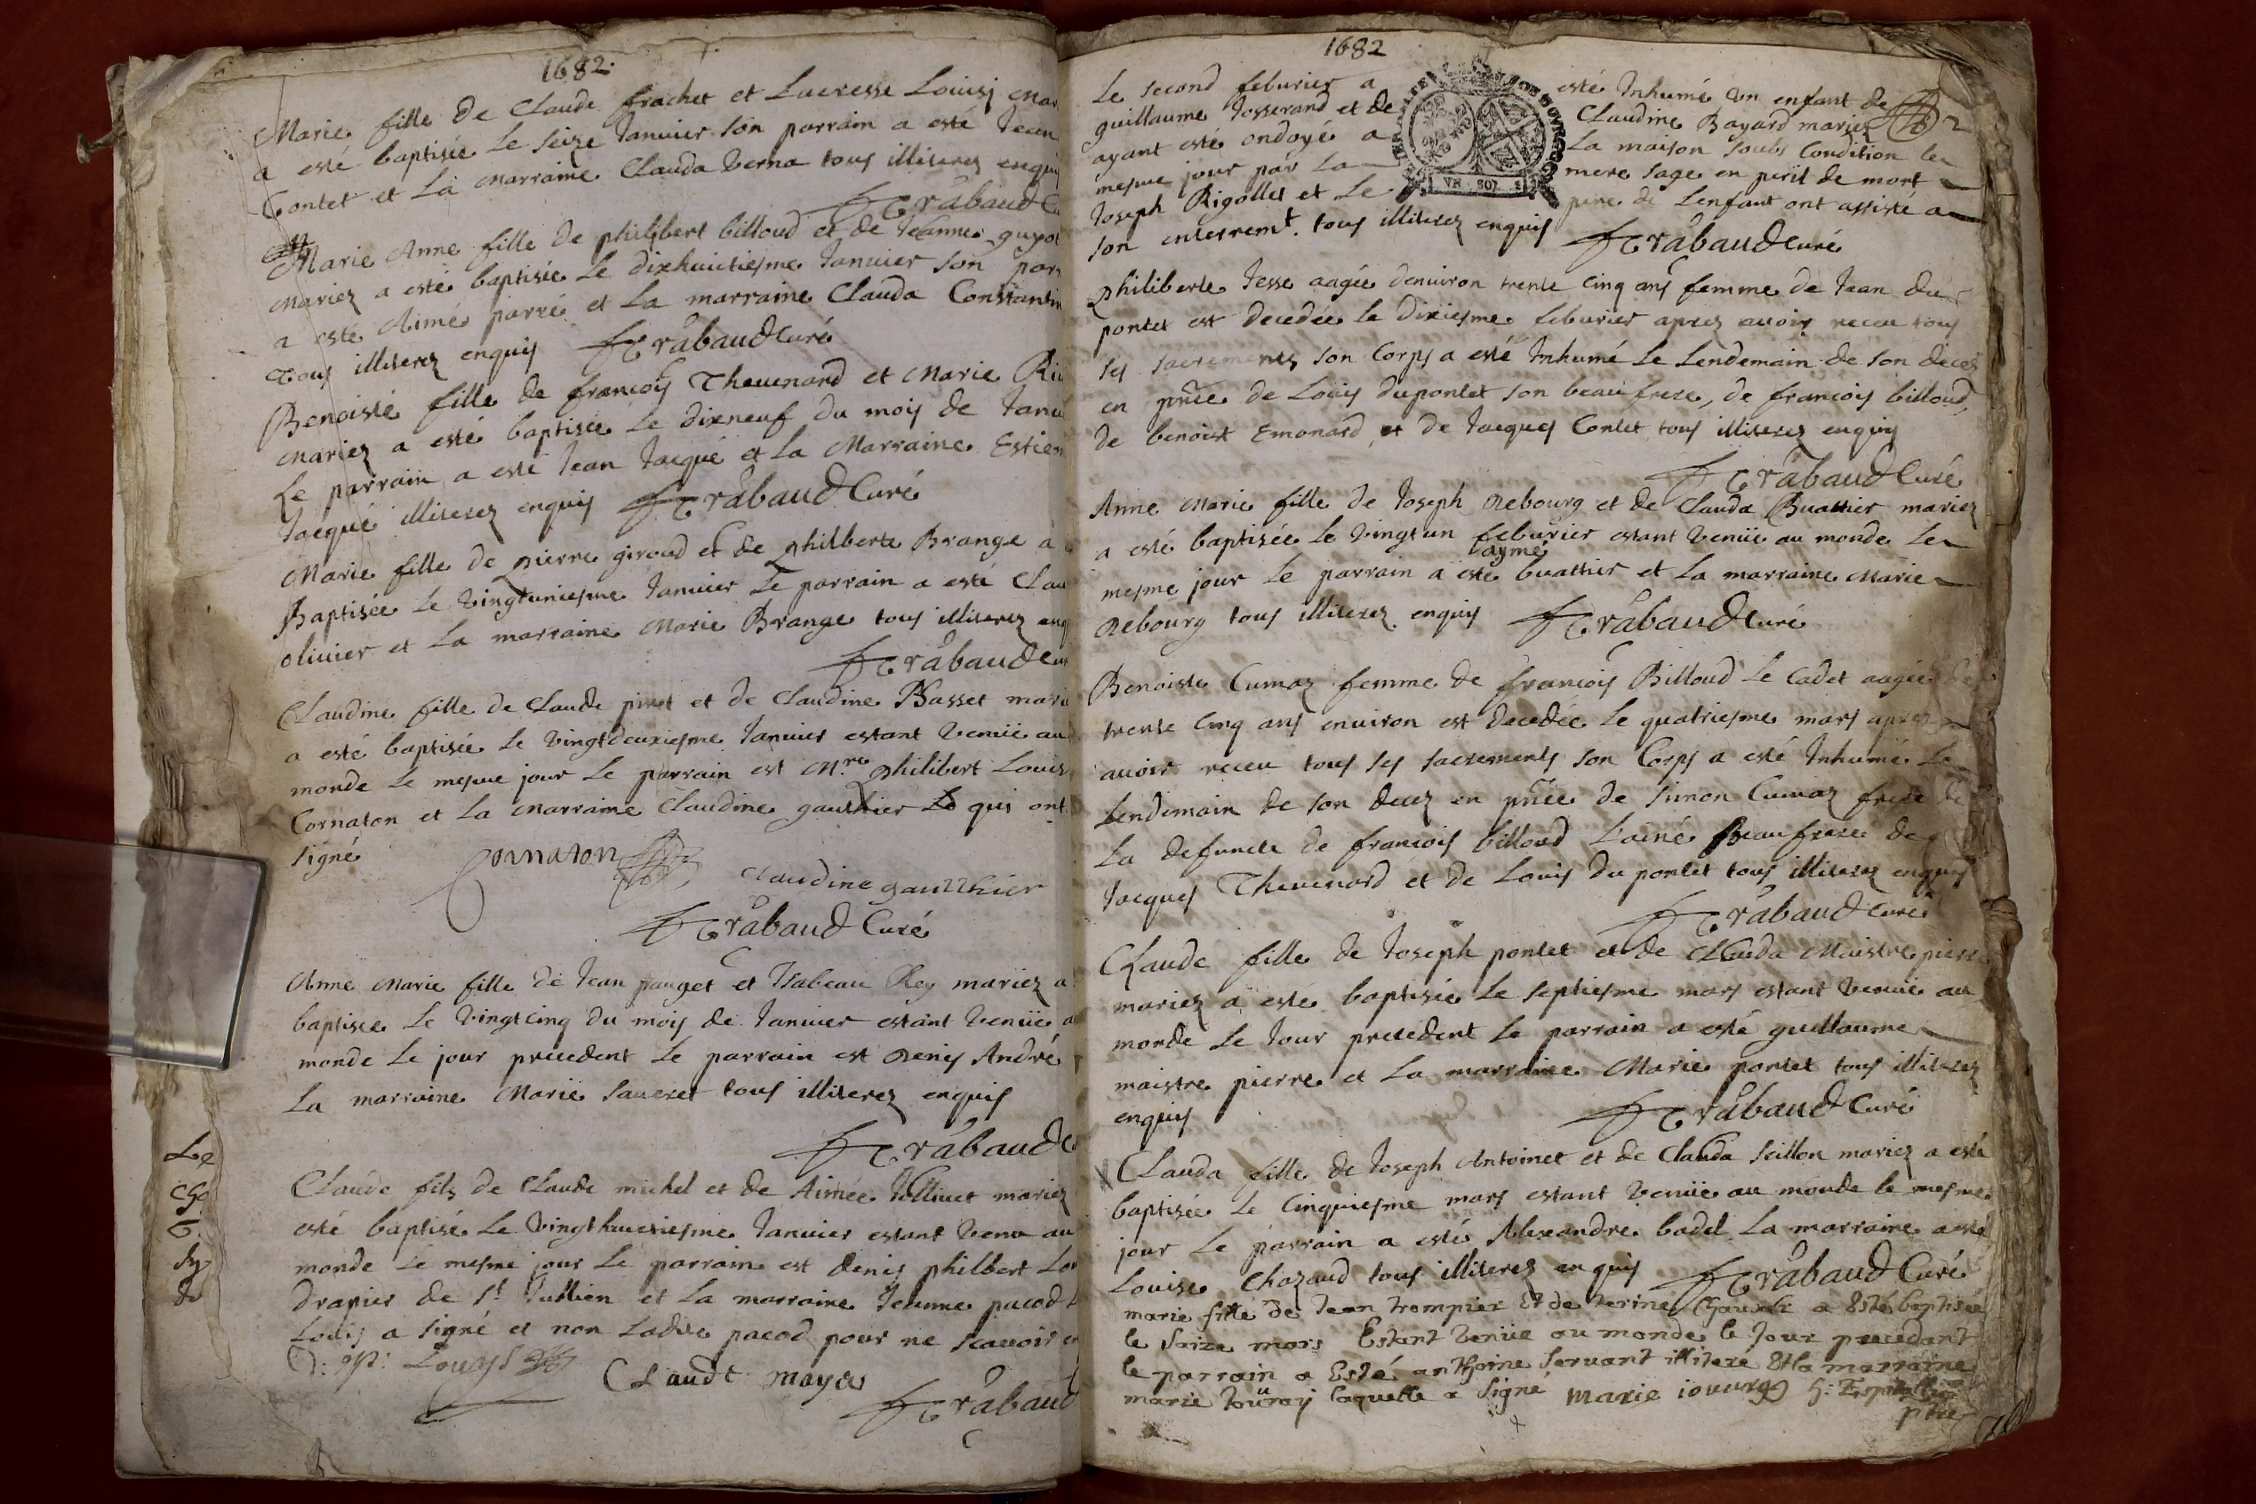 1682
Marie fille de Claude frachet et Lucresse Louisj mar
a esté baptisée Le seize Januier son parrain a esté Jean
Contet et La marraine Clauda Verna tous illiterez enquis
Trabaud Cu
Marie Anne fille de philibert billoud et de Jeanne guyot
mariez a esté baptisée Le dixhuictiesme Januier son parr
a esté Aimé parré et La marraine Clauda Constantin
tous illiterez enquis Trabaud Curé
Benoisté fille de francois Theuenard et Marie Riu
mariez a esté baptisée Le dixneuf du mois de Janu
Le parrain a esté Jean Jacqué et La Marraine Estien
Jacqué illiterez enquis Trabaud Curé
Marie fille de pierre giroud et de philberte Brange a
Baptisée Le Vingtuniesme Januier Le parrain a esté Clau
oliuier et La marraine Marie Brange tous illiterez enq
Trabaud Cur
Claudine fille de Claude et de Claudine Basset marie
a esté baptisée Le Vingtdeuxiesme Januier estant Venuë au
monde Le mesme jour Le parrain est Mre philibert Louis
Cornaton et La marraine Claudine gauthier qui ont
signé Cornaton Claudine gautthier
Trabaud Curé
Anne Marie fille de Jean pauget et Isabeau Rey mariez a
baptisée Le Vingtcinq du mois de Januier estant Venuë a
monde Le jour precedent Le parrain est Denis André
La marraine Marie saueret tous illiterez enquis
Trabaud C
Claude fils de Claude michel et de Aimée Jolliuet mariez
esté baptisé Le Vingthuictiesme Januier estant Venu au
monde Le mesme jour Le parrain est denis philbert Lou
drapier de St Jullien et La marraine Jeanne pacod
Louis a signé et non Ladite pacod pour ne scauoir
D: ph: Louys Claude maya
Trabaud
Le
1682
Le second feburier a esté Inhumé Vn enfant de
guillaume Josserand et de Claudine Bayard mariez
ayant esté ondoyé a La maison soubs Condition le
mesme jour par La mere sage en peril de mort
Joseph Rigollet et Le pere de Lenfant ont assisté a
son enterremt. tous illiterez enquis Trabaud Curé
philiberte Jesse aagée denuiron trente Cinq ans femme de Jean du
pontet est decedée le dixiesme feburier apres auoir receu tous
ses sacrements son Corps a esté Inhumé Le Lendemain de son decez
en pñce de Louis dupontet son beau frere, de francois billoud,
de benoist Emonard et de Jacques Contet tous illiterez enquis
Trabaud Curé
Anne Marie fille de Joseph Rebourg et de Clauda Buattier mariez
a esté baptisée Le Vingtun feburier estant Venüe au monde Le
mesme jour Le parrain a esté aymé buattier et La marraine Marie
Rebourg tous illiterez enquis Trabaud Curé
Benoiste Cumaz femme de francois Billoud Le Cadet aagée
trente Cinq ans enuiron est decedée Le quatriesme mars apres
auoir receu tous ses sacrements son Corps a esté Inhumé Le
Lendemain de son decez en pñce de simon Cumaz frere de
La defuncte de francois billoud L'ainé Beau frere de
Jacques Theuenard et de Louis du pontet tous illiterez enquis
Trabaud Curé
Claude fille de Joseph pontet et de Clauda Maistre pierre
mariez a esté baptisée Le septiesme mars estant Venuë au
monde Le Jour precedent Le parrain a esté guillaume
maistre pierre et La marraine Marie pontet tous illiterez
enquis Trabaud Curé
Clauda fille de Joseph Antoinet et de Clauda seillon mariez a esté
baptisée Le Cinquiesme mars estant Venüe au monde le mesme
jour Le parrain a esté Alexandre badel La marraine a esté
Louise Chazaud tous illiterez enquis Trabaud Curé
marie fille de Jean trompier Et de terine a Esté baptisée
le saize mars Estant Venüe au monde le Jour precedant
le parrain a Esté anthoine seruant illiteré Et la marraine
marie laquelle a signé marie